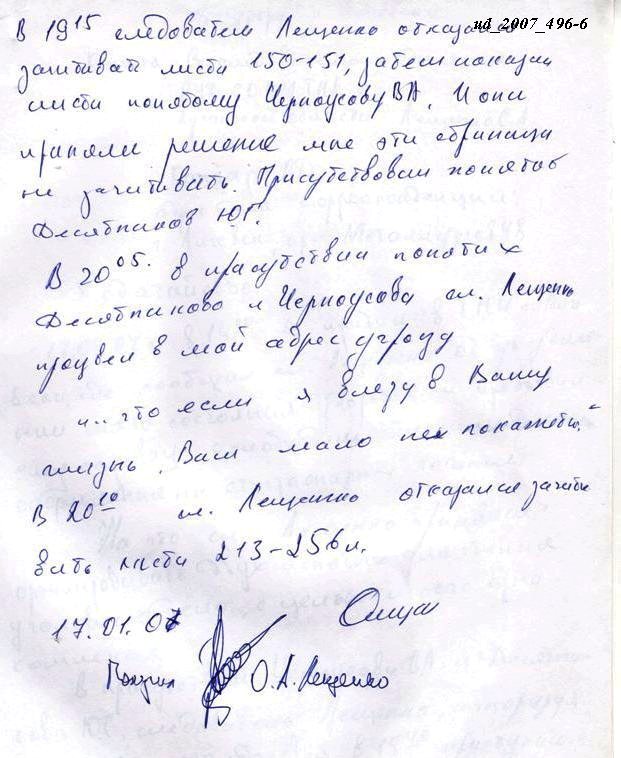 ud_2007_496-6
В 19¹⁵ следователь Лещенко отказался
зачитывать листы 150-151, затем показал
листы понятому Черноусову ВА. И они
приняли решение мне эти страницы
не зачитывать. Присутствовал понятой
Десятников Ю.Г.
В 20⁰⁵. в присутствии понятых
Десятникова и Черноусова сл. Лещенко
произвел в мой адрес угрозу
"... что если я влезу в Вашу
жизнь, Вам мало не покажеться."
В 20¹⁰ сл. Лещенко отказался зачиты
вать листы 213-256 л.
17.01.07
Получил О.А. Лещенко